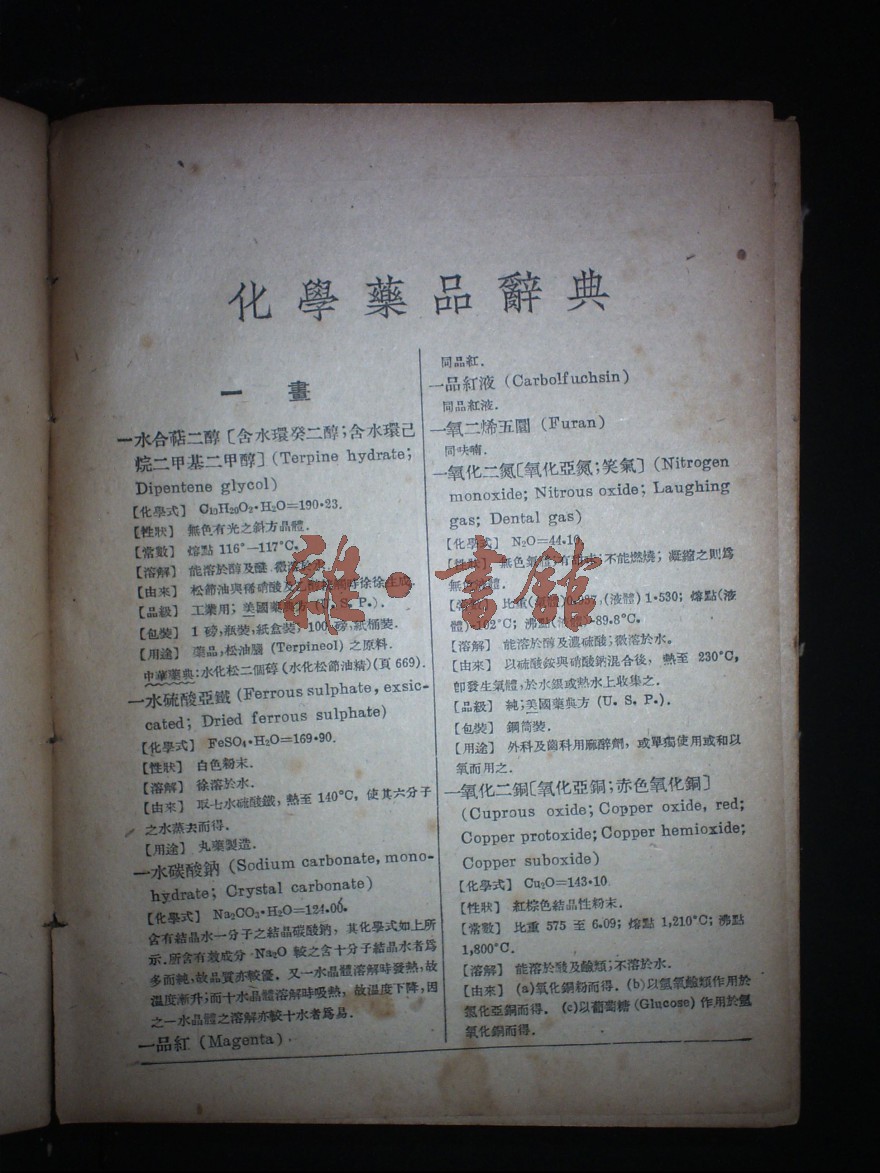 化學藥品辭典
一 畫
一水合萜二醇〔含水環癸二醇；含水環己
烷二甲基二甲醇〕(Terpine hydrate;
Dipentene glycol)
【化學式】 C₁₀H₂₀O₂·H₂O=190·23.
【性狀】 無色有光之斜方晶體.
【常數】 熔點 116°—117°C.
【溶解】 能溶於醇及醚 微溶於水
【由來】 松節油與稀硝酸及 徐徐生成.
【品級】 工業用；美國藥典方 (U. S. P.).
【包裝】 1 磅,瓶裝,紙盒裝；100 磅,紙桶裝.
【用途】 藥品,松油腦 (Terpineol) 之原料.
中華藥典：水化松二個醇 (水化松節油精) (頁 669).
一水硫酸亞鐵 (Ferrous sulphate, exsic-
cated; Dried ferrous sulphate)
【化學式】 FeSO₄·H₂O=169·90.
【性狀】 白色粉末.
【溶解】 徐溶於水.
【由來】 取七水硫酸鐵，熱至 140°C，使其六分子
之水蒸去而得.
【用途】 丸藥製造.
一水碳酸鈉 (Sodium carbonate, mono-
hydrate; Crystal carbonate)
【化學式】 Na₂CO₃·H₂O=124·00.
含有結晶水一分子之結晶碳酸鈉，其化學式如上所
示.所含有效成分 Na₂O 較之含十分子結晶水者爲
多而純,故品質亦較優．又一水晶體溶解時發熱,故
溫度漸升;而十水晶體溶解時吸熱，故溫度下降,因
之一水晶體之溶解亦較十水者爲易.
一品紅 (Magenta)
同品紅.
一品紅液 (Carbolfuchsin)
同品紅液.
一氧二烯五圜 (Furan)
同呋喃.
一氧化二氮〔氧化亞氮；笑氣〕(Nitrogen
monoxide; Nitrous oxide; Laughing
gas; Dental gas)
【化學式】 N₂O=44·10
【性狀】 無色氣體,有甜味;不能燃燒；凝縮之則爲
無色液體.
【常數】 比重(氣體)0.997,(液體) 1·530; 熔點(液
體)-102°C；沸點(液體)-89.8°C.
【溶解】 能溶於醇及濃硫酸;微溶於水.
【由來】 以硫酸銨與硝酸鈉混合後，熱至 230°C,
卽發生氣體,於水銀或熱水上收集之.
【品級】 純;美國藥典方 (U. S. P.).
【包裝】 鋼筒裝.
【用途】 外科及齒科用麻醉劑，或單獨使用或和以
氧而用之.
一氧化二銅〔氧化亞銅;赤色氧化銅〕
(Cuprous oxide; Copper oxide, red;
Copper protoxide; Copper hemioxide;
Copper suboxide)
【化學式】 Cu₂O=143·10
【性狀】 紅棕色結晶性粉末.
【常數】 比重 575 至 6.09; 熔點 1,210°C; 沸點
1,800°C.
【溶解】 能溶於酸及鹼類;不溶於水.
【由來】 (a)氧化銅粉而得．(b)以氫氧鹼類作用於
氯化亞銅而得．(c)以葡萄糖 (Glucose) 作用於氫
氧化銅而得.
雜·書館